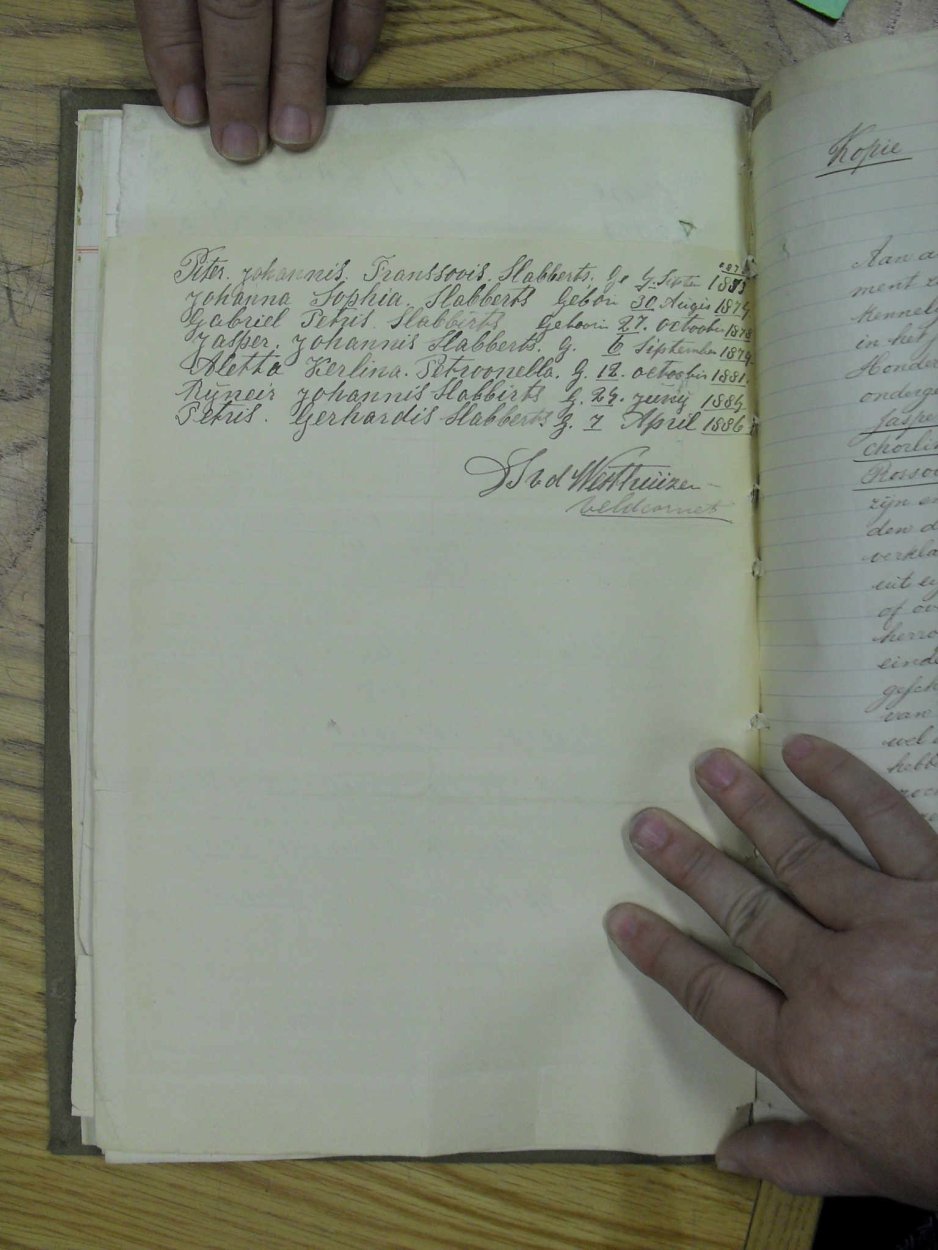 Peter. Johannis. Franssovis. Slabberts. g. 9. Septer 1883
Johanna Sophia. Slabberts Gebon 30 Augis 1874
Gabriel Petris. Slabbirts Geboorin 27. octoober 1878
Jasper. Johannis Slabberts. G. 6 September 1879
Aletta Kerlina. Petroonella. G. 12. octoobir 1881.
Rijneir Johannis Slabbirts G. 29. juinij 1884
Petris. Gerhardis Slabberts G. 7 April 1886
v d Westhuizen
Veldcornet
Kopie
Aan a
ment z
kennel
in het
Honder
onderge
Jasper
Chorli
Rosso
zijn e
den d
verkla
uit eij
of ov
herro
einde
gesch
van
wel
hebb